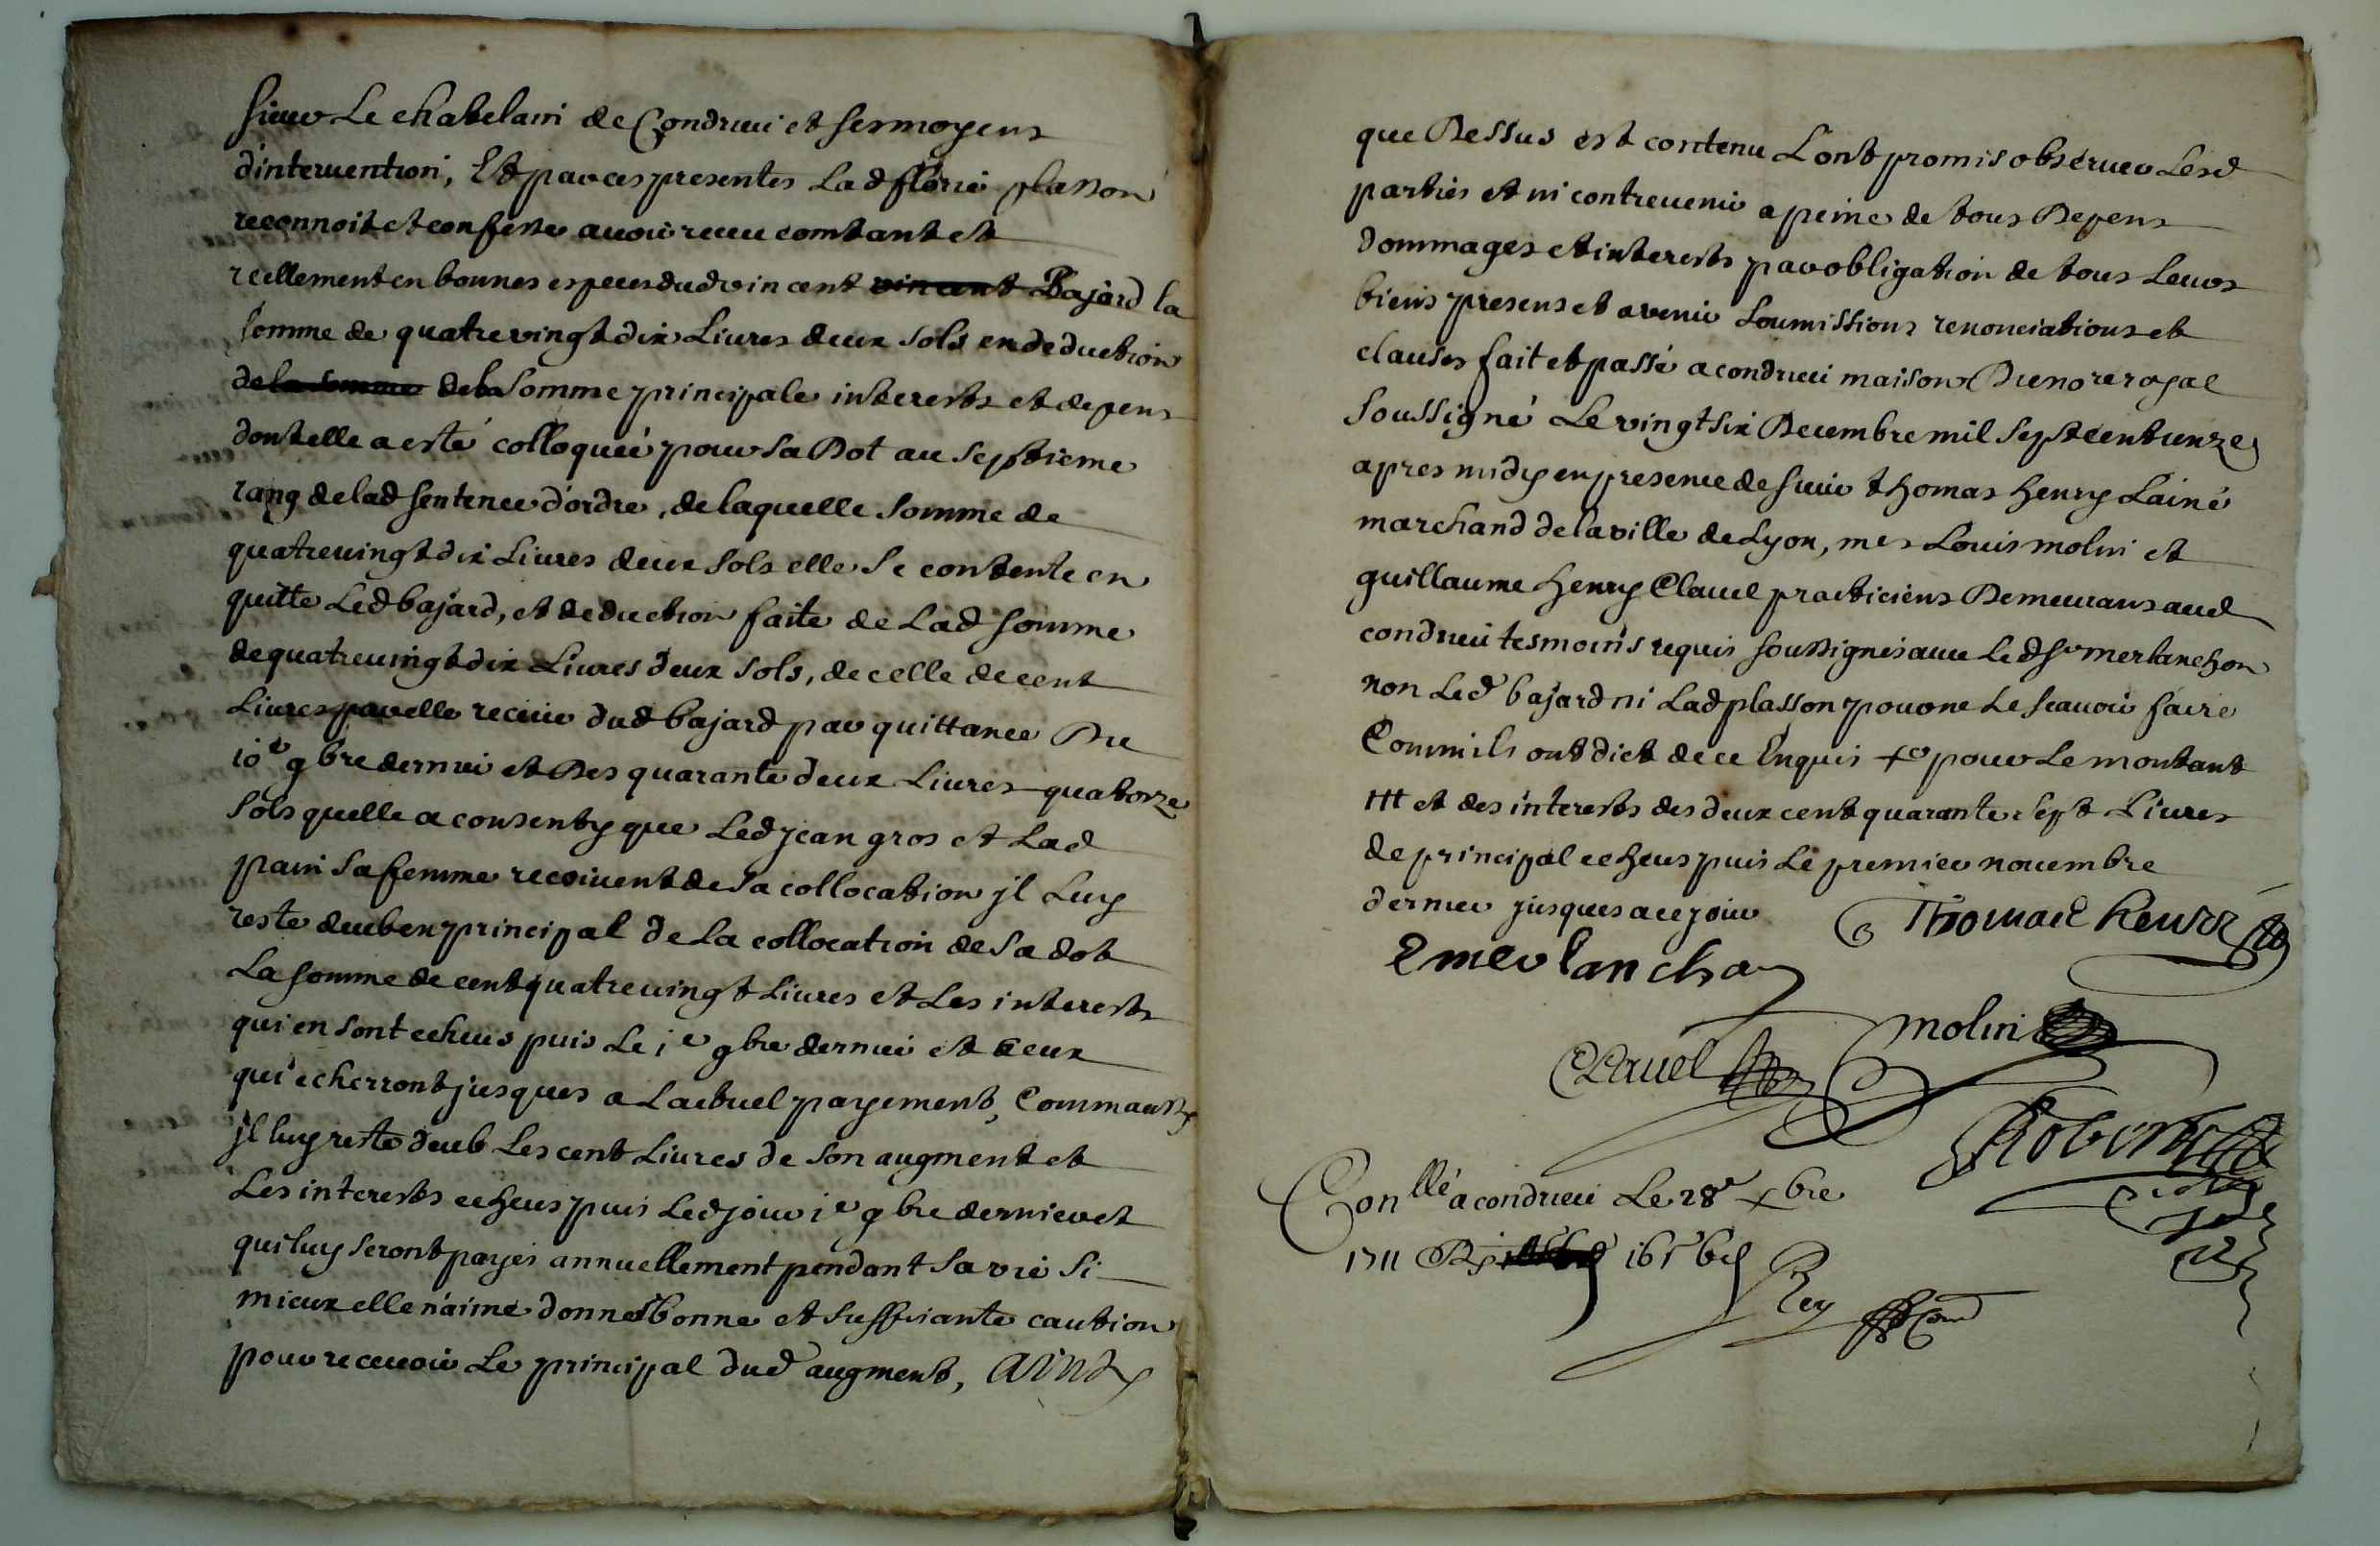 sieur Le chatelain de Condrieu et ses moyens
d'intervention, Et par ces presentes Lad florie plasson
reconnoit et confesse avoir receu comtant et
reellement en bonnes especes dud vincent vincent Bajard la
somme de quatrevingt dix Livres deux sols en deduction
de la somme de la somme principale interests et depens
dont elle a esté colloquée pour sa Dot au septieme
rang de lad sentence d'ordre, de laquelle somme de
quatrevingt dix Livres deux sols elle se contente en
quitte Led bajard, et deduction faite de Lad somme
de quatrevingt dix Livres deux sols, de celle de cent
Livres par elle receue dud bajard par quittance Du
10e 9bre dernier et Des quarante deux Livres quatorze
sols quelle a consenty que Led jean gros et Lad
pain sa femme recoivent de sa collocation jl Luy
reste deub en principal de La collocation de sa dot
La somme de cent quatrevingt Livres et Les interests
qui en sont echeus puis Le je 9bre dernier et ceux
qui echerront jusques a Lactuel payement, Comm aussy
jl luy reste deub Les cent Livres de son augment et
Les interests echeus puis Led jour ie 9bre dernier et
qui luy seront payés annuellement pendant sa vie si
mieux elle n'aime donner bonne et suffisante caution
pour recevoir Le principal dud augment, ainsy
que Dessus est contenu L'ont promis observer Lesd
parties et ni contrevenir a peine de tous Depens
dommages et interests par obligation de tous Leurs
biens presens et avenir soumissions renonciations et
clauses fait et passé a condrieu maison Du nore royal
soussigné Le vingt six Decembre mil sept cent unze
apres midy en presence de sieur thomas henry Lainé
marchand de la ville de Lyon, mes Louis molin et
guillaume henry Clavel practiciens Demeurans aud
condrieu tesmoins requis soussignés avec Led sr merlanchon
non Led bajard ni Lad plasson pour ne Le scavoir faire
Comm ils ont dict de ce Enquis pour Le montant
ttt et des interests des deux cent quarante sept Livres
de principal echeus puis Le premier novembre
dernier jusques a ce jour
Thomas henri
E merlanchon
molin
Clavel
Robert
Conllé a condrieu Le 28e xbre
1711 Rey